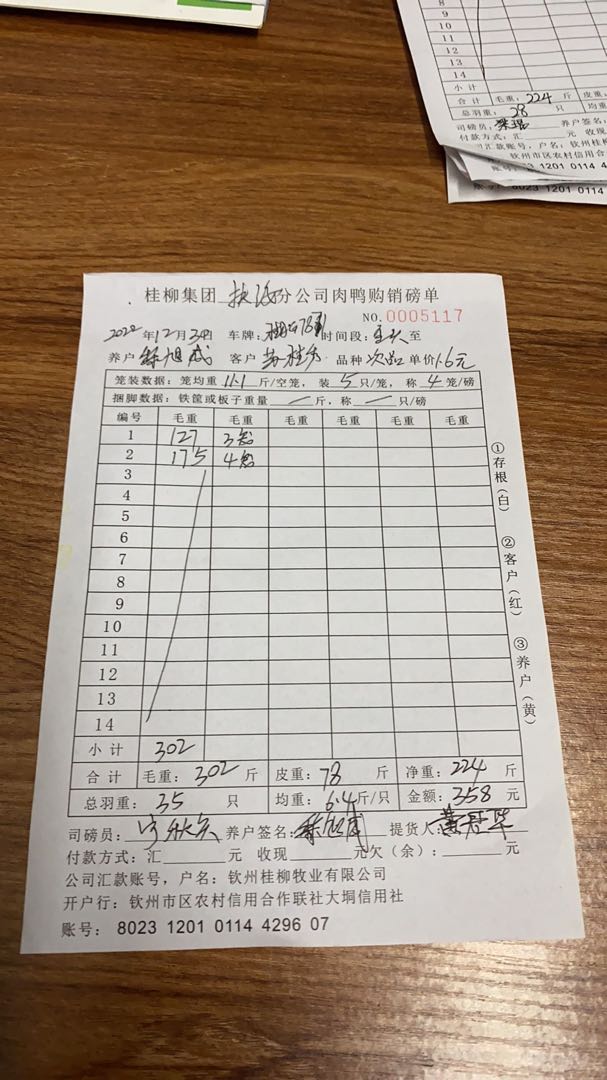 8
9
10
11
12
13
14
小计
合计 毛重：224 斤 皮重：
总羽重：28 只 均重
司磅员： 养户签名：
付款方式：汇 元 收现
汇款账号，户名：钦州桂柳
钦州市区农村信用合
账号：8023 1201 0114 4
桂柳集团 分公司肉鸭购销磅单
NO.0005117
2022年12月3日 车牌： 时间段： 至
养户 客户 品种 次品 单价1.6元
笼装数据：笼均重 11.1 斤/空笼，装 5 只/笼，称 4 笼/磅
捆脚数据：铁筐或板子重量 斤，称 只/磅
编号 毛重 毛重 毛重 毛重 毛重 毛重
1 127 3
2 175 4
3
4
5
6
7
8
9
10
11
12
13
14
小计 302
合计 毛重：302 斤 皮重：78 斤 净重：224 斤
总羽重：35 只 均重：6.4 斤/只 金额：358 元
司磅员： 养户签名： 提货人：
付款方式：汇 元 收现 元欠（余）： 元
公司汇款账号，户名：钦州桂柳牧业有限公司
开户行：钦州市区农村信用合作联社大垌信用社
账号：8023 1201 0114 4296 07
①存根（白）
②客户（红）
③养户（黄）